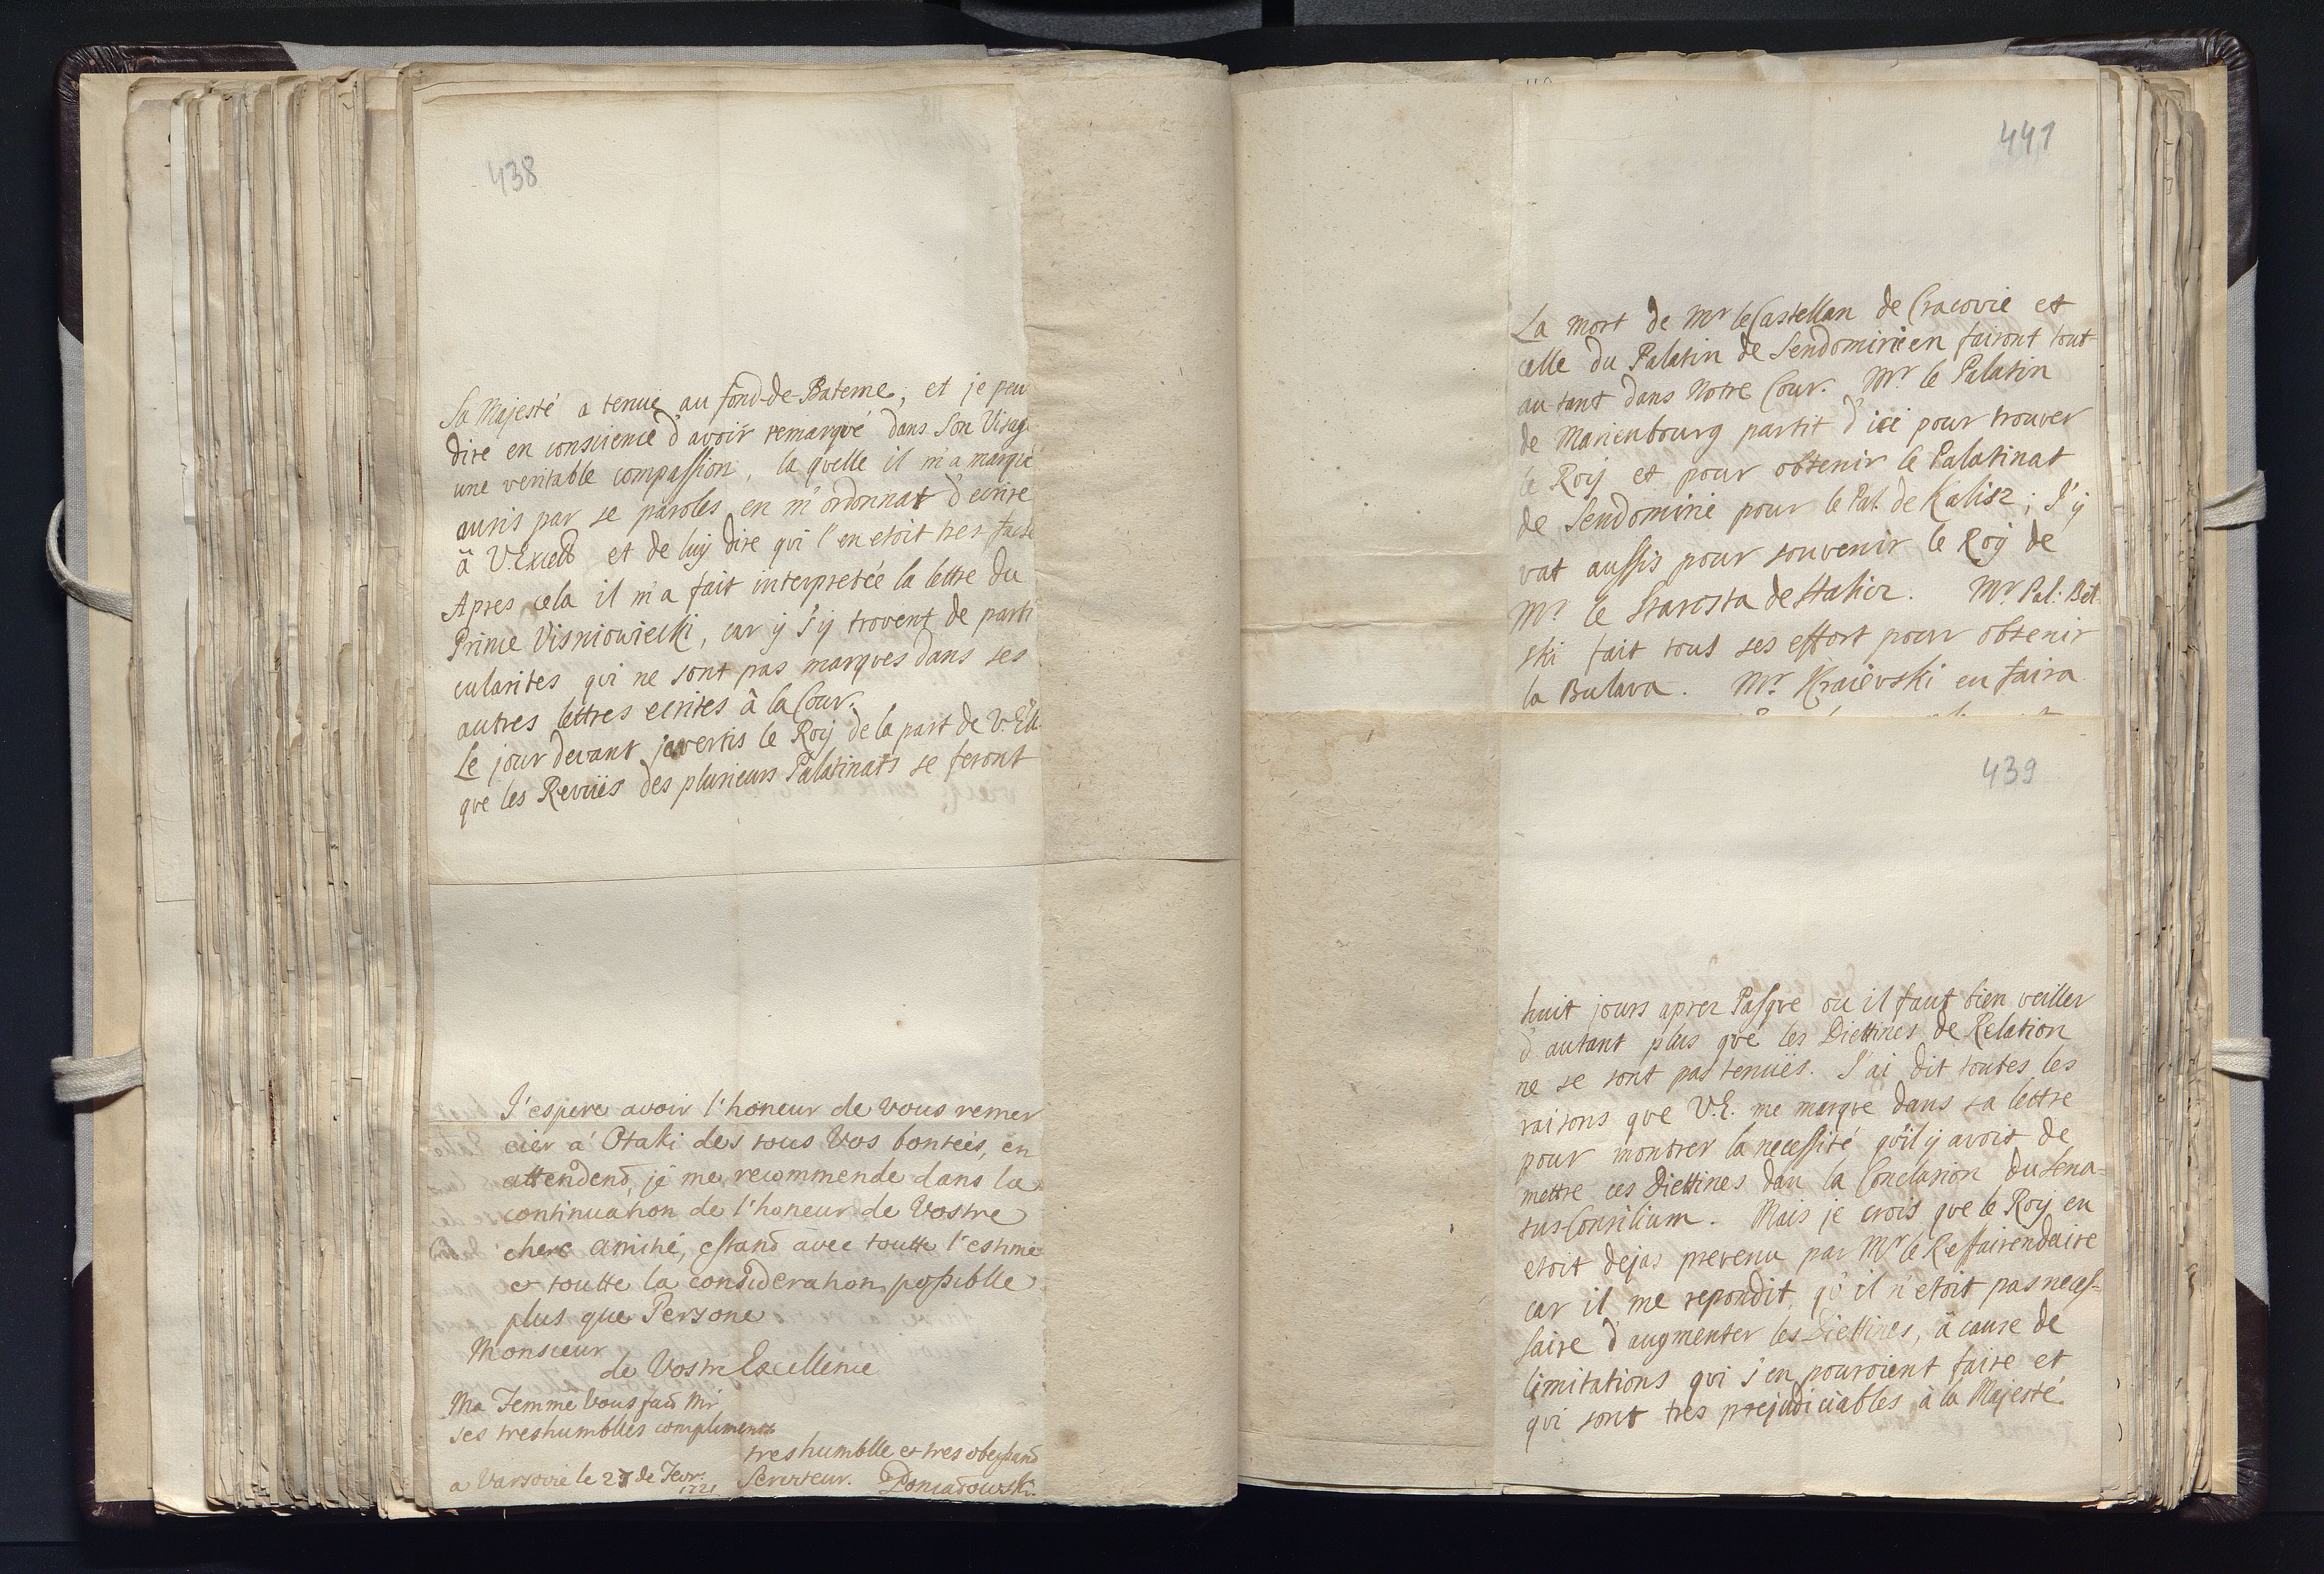 438
Sa Majesté a tenue au fond-de-Bateme, et je peu
dire en conscience d'avoir remarqué dans son Visage
une veritable compassion, la qvelle il m'a marqué
auris par se paroles en m'ordonnat d'ecrire
â V. Excell et de luy dire qvi l'en etoit tres fache
Apres cela il m'a fait interpretée la lettre du
Prince Visniowiecki, car y s'y trovent de parti
cularites qvi ne sont pas marqves dans ses
autres lettres ecrites â la Cour.
Le jour devant javertis le Roy de la part de V. Ell.
qve les Reviies des plusieurs Palatinats se feront
J'espere avoir l'honeur de vous remer
cier a' Otaki des tous Vos bontées, en
attendend, je me recommende dans la
continuation de l'honeur de Vostre
chere amitié, estand avec toutte l'estime
et toutte la consideration possiblle
plus que Persone
Monsieur
de Vostre Excellence
Ma Femme vous fait Mr
ses treshumblles complimens
treshumblle et tres obeyssand
a Varsovie le 27 de Fevr. Serviteur. Poniatowski.
1721
441
La mort de Mr le Castellan de Cracovie et
celle du Palatin de Sendomirie en fairont tout
au-tant dans Notre Cour. Mr. le Palatin
de Marienbourg partit d'ici pour trouver
le Roy et pour obtenir le Palatinat
de Sendomirie pour le Pal. de Kalisz; J'y
vat aussis pour souvenir le Roy de
Mr. le Starosta de Halicz. Mr. Pal: Bel
ski fait tous ses effort pour obtenir
la Bulava. Mr. Kraievski en faira
439
huit jours aprez Pasqve ou il faut bien veiller
d'autant plus qve les Diettines de Relation
ne se sont pas tenües. J'ai dit toutes les
raisons qve V.E. me marqve dans sa lettre
pour montrer la necessité qv'il y avoit de
mettre ces Diettines dan la Conclusion du Sena-
tus-Consilium. Mais je crois qve le Roy en
etoit dejas prevenu par Mr le Reffairendaire
car il me repondit, qv'il n'etoit pas neces-
saire d'augmenter les Diettines, â cause de
limitations qvi s'en pouroient faire et
qvi sont tres prejudiciables â la Majesté